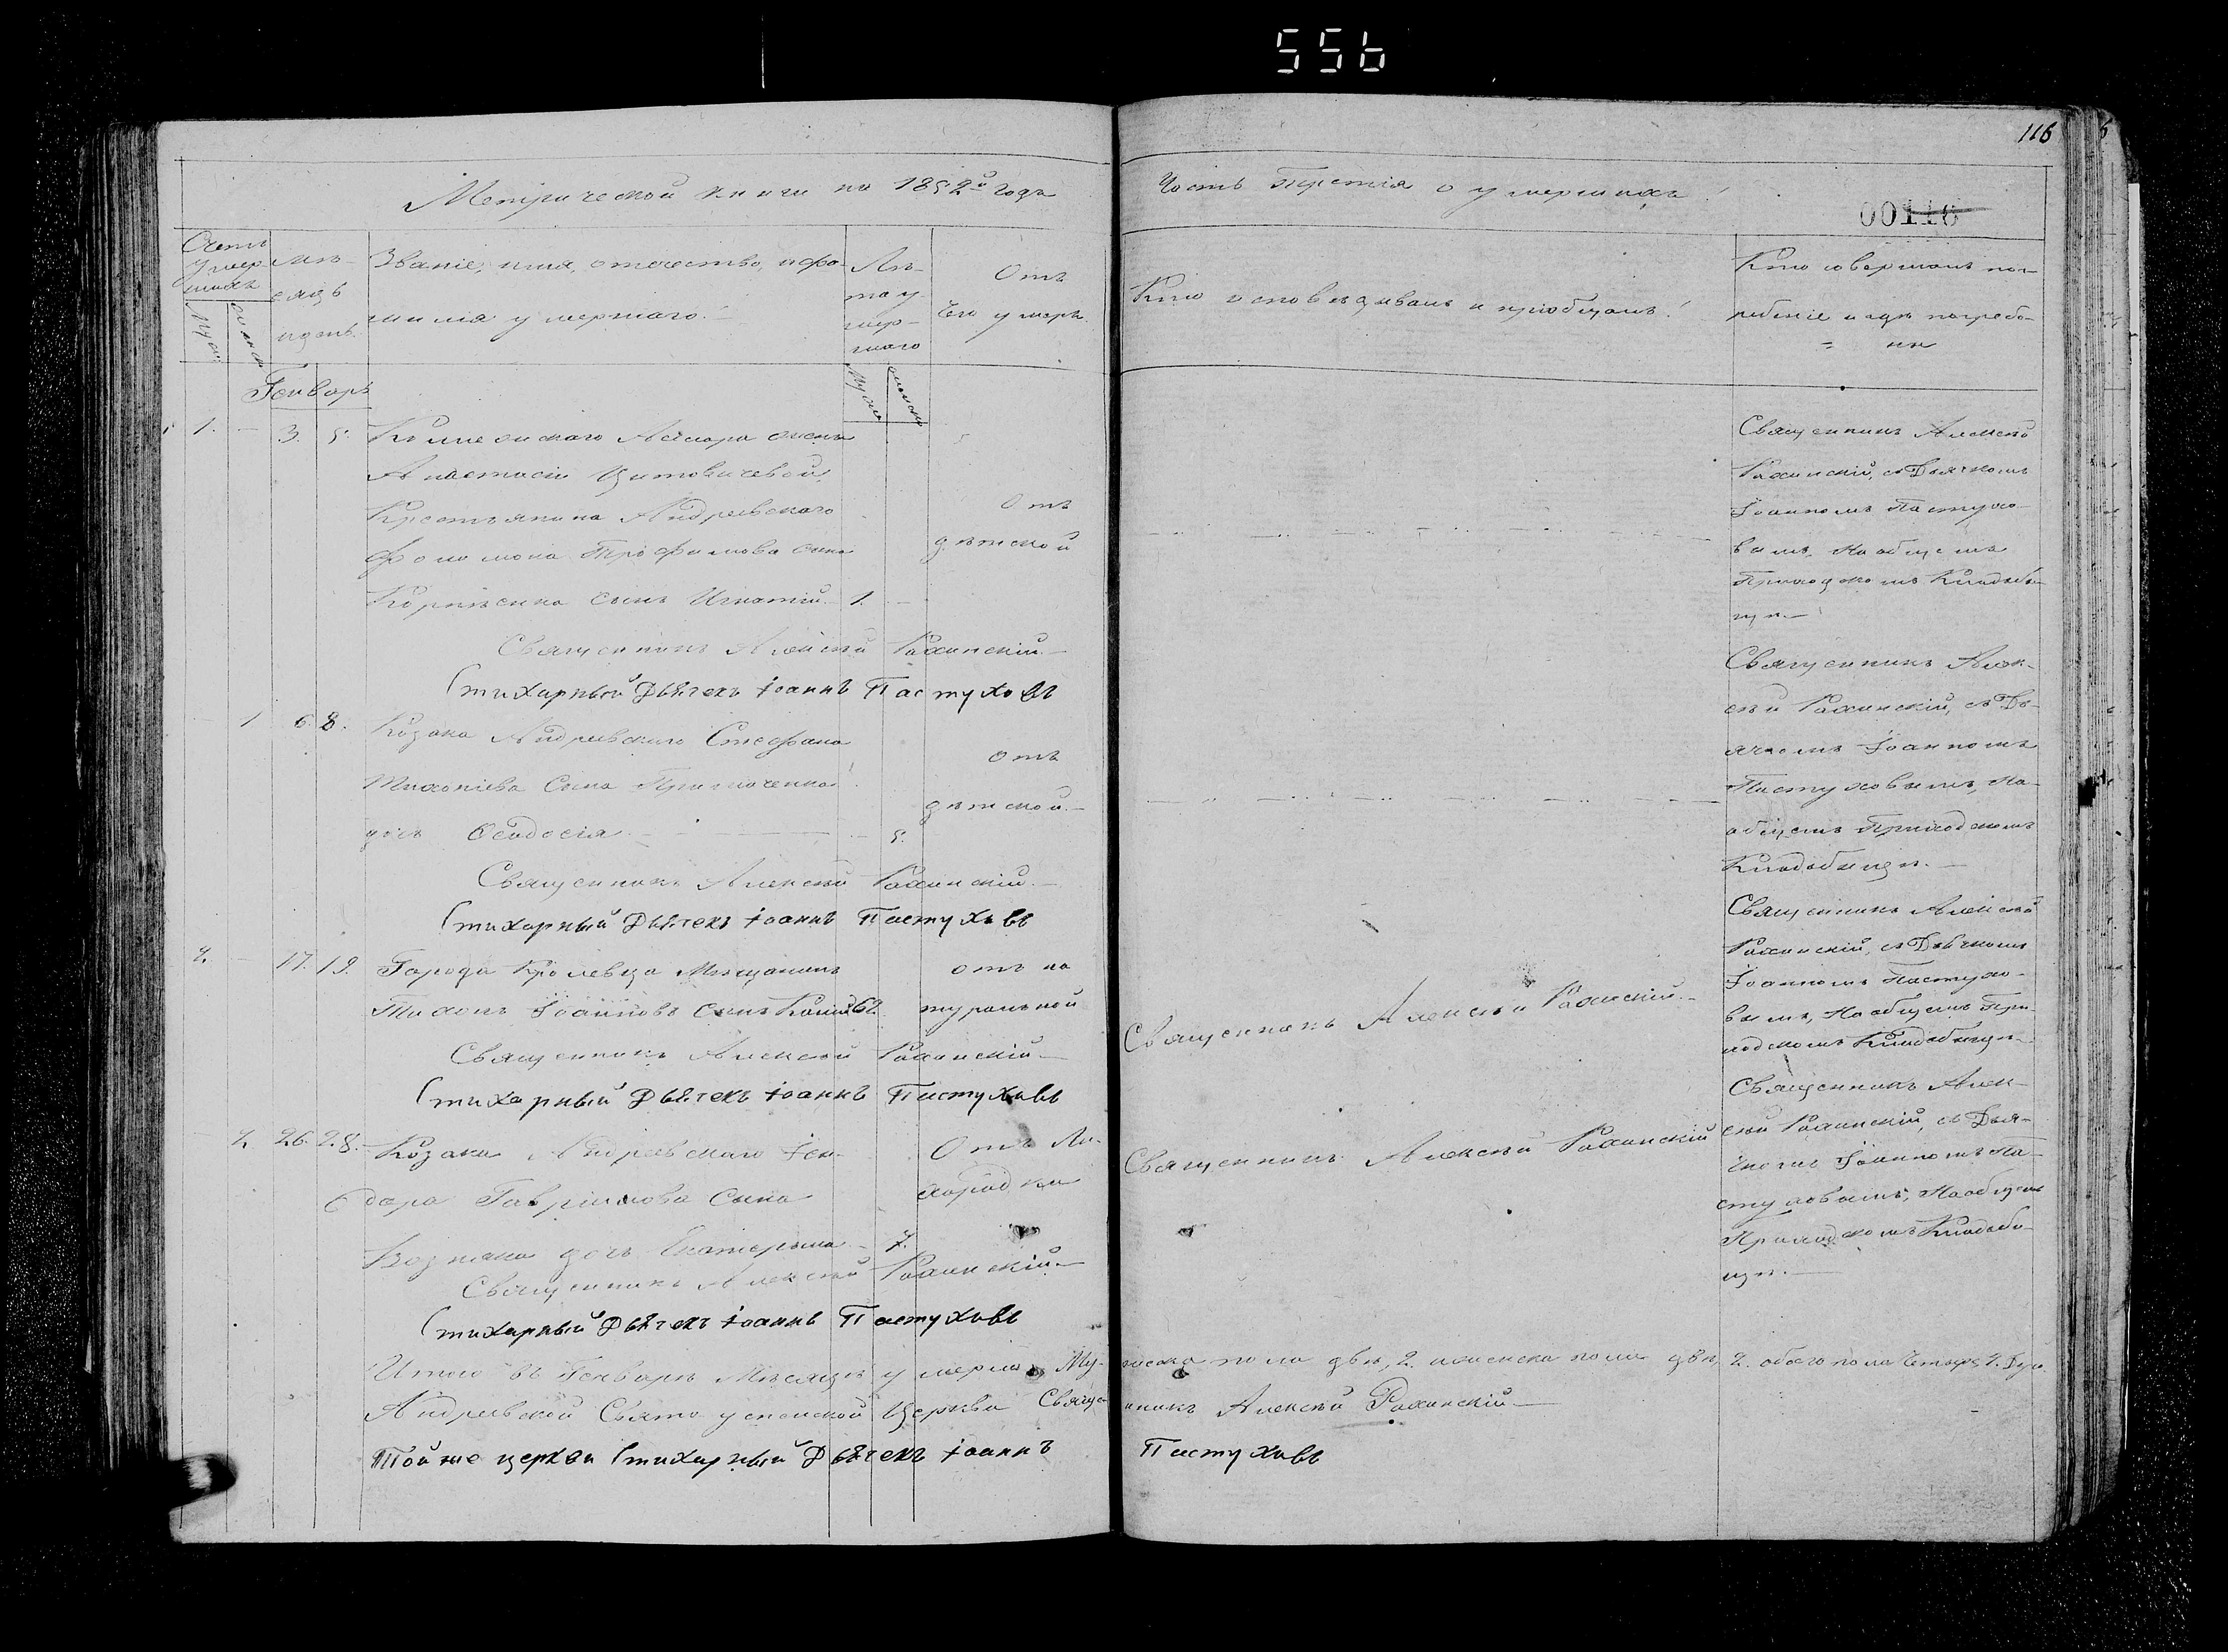 556
116
Метрической книги на 1852й годъ
Часть Третія о умершихъ
00116
Счетъ умершихъ
Муж.
Женск.
Мѣсяцъ и день.
Званіе, имя, отечество, и фамилія умершаго.
Лѣта умершаго
Муж.
Женск.
Отъ чего умеръ
Кто исповѣдывалъ и пріобщалъ
Кто совершалъ погребеніе и гдѣ погребены
Генварь
1. 3. 5.
Асессора жены
Анастасіи
Крестьянина Андреевского
Трофимова сына
сынъ Игнатій 1.
Отъ
дѣтской
Священникъ Алексѣй
Рахинскій, съ Дьячкомъ
Іоанномъ Пастухо-
вымъ, На общемъ
Приходскомъ Кладби-
щѣ.
Священникъ Алексѣй Рахинскій.
Стихарный Дьячекъ Іоаннъ Пастуховъ
1 6. 8.
Козака Андреевского Стефана
сына
дочь Ѳеодосія 5.
Отъ
дѣтской.
Священникъ Алек-
сѣй Рахинскій, съ Дь-
ячкомъ Іоанномъ
Пастуховымъ, На
общемъ Приходскомъ
Кладбищѣ.
Священникъ Алексѣй Рахинскій.
Стихарный Дьячекъ Іоаннъ Пастуховъ
2. 17. 19.
Города Кролевца Мѣщанинъ
Тихонъ Іоанновъ сынъ 62.
отъ на
туральной
Священникъ Алексѣй Рахинскій.
Священникъ Алексѣй
Рахинскій, съ Дьячкомъ
Іоанномъ Пастухо-
вымъ, На общемъ При-
ходскомъ Кладбищѣ.
Священникъ Алексѣй Рахинскій
Стихарный Дьячекъ Іоаннъ Пастуховъ
2. 26. 28.
Козака Андреевского
Гавріилова Сына
дочь Екатерина 7.
Отъ Ли-
хорадки
Священникъ Алексѣй Рахинскій
Священникъ Алек-
сѣй Рахинскій, съ Дья-
чкомъ Іоанномъ Па-
стуховымъ, На общемъ
Приходскомъ Кладби-
щѣ.
Священникъ Алексѣй Рахинскій.
Стихарный Дьячекъ Іоаннъ Пастуховъ
Итого въ Генварѣ Мѣсяцѣ умерло Мужеска пола двѣ, 2. женска пола двѣ, 2. обоего пола Четыре 4. Души
Андреевской Свято успенской Церкви Священникъ Алексѣй Рахинскій
Той же церкви Стихарный Дьячекъ Іоаннъ Пастуховъ